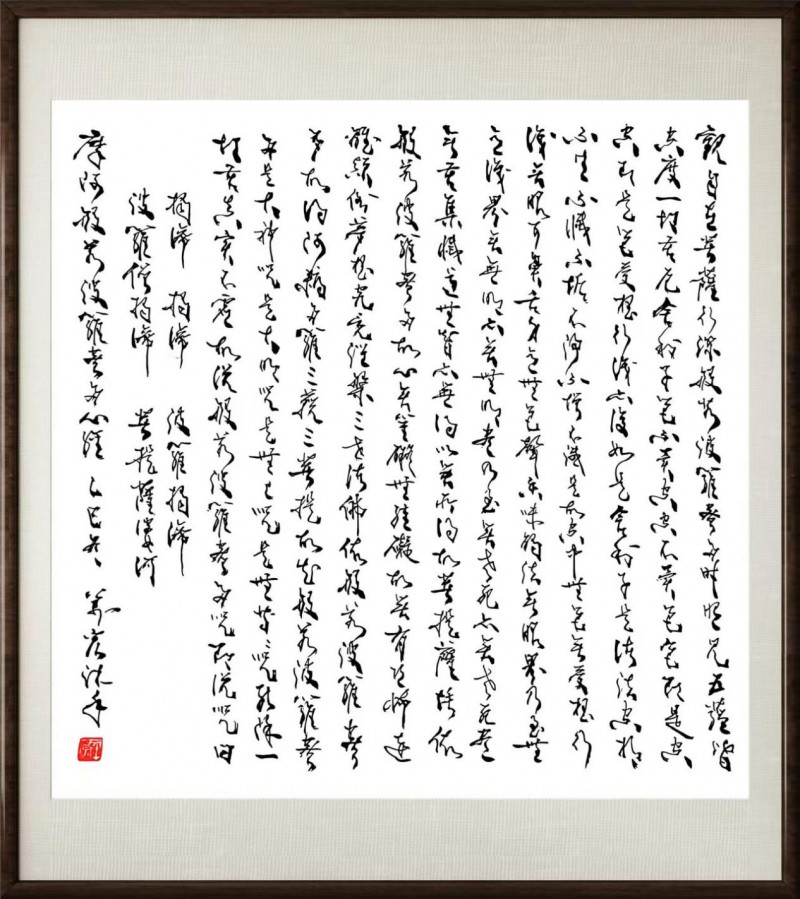 觀自在菩薩行深般若波羅蜜多時照見五蘊皆
空度一切苦厄舍利子色不異空空不異色色即是空
空即是色受想行識亦復如是舍利子是諸法空相
不生不滅不垢不淨不增不減是故空中無色無受想行
識無眼耳鼻舌身意無色聲香味觸法無眼界乃至無
意識界無無明亦無無明盡乃至無老死亦無老死盡
無苦集滅道無智亦無得以無所得故菩提薩埵依
般若波羅蜜多故心無罣礙無罣礙故無有恐怖遠
離顛倒夢想究竟涅槃三世諸佛依般若波羅蜜
多故得阿耨多羅三藐三菩提故知般若波羅蜜
多是大神咒是大明咒是無上咒是無等等咒能除一
切苦真實不虛故說般若波羅蜜多咒即說咒曰
揭諦 揭諦 波羅揭諦
波羅僧揭諦 菩提薩婆訶
摩訶般若波羅蜜多心經 乙巳冬 沐手